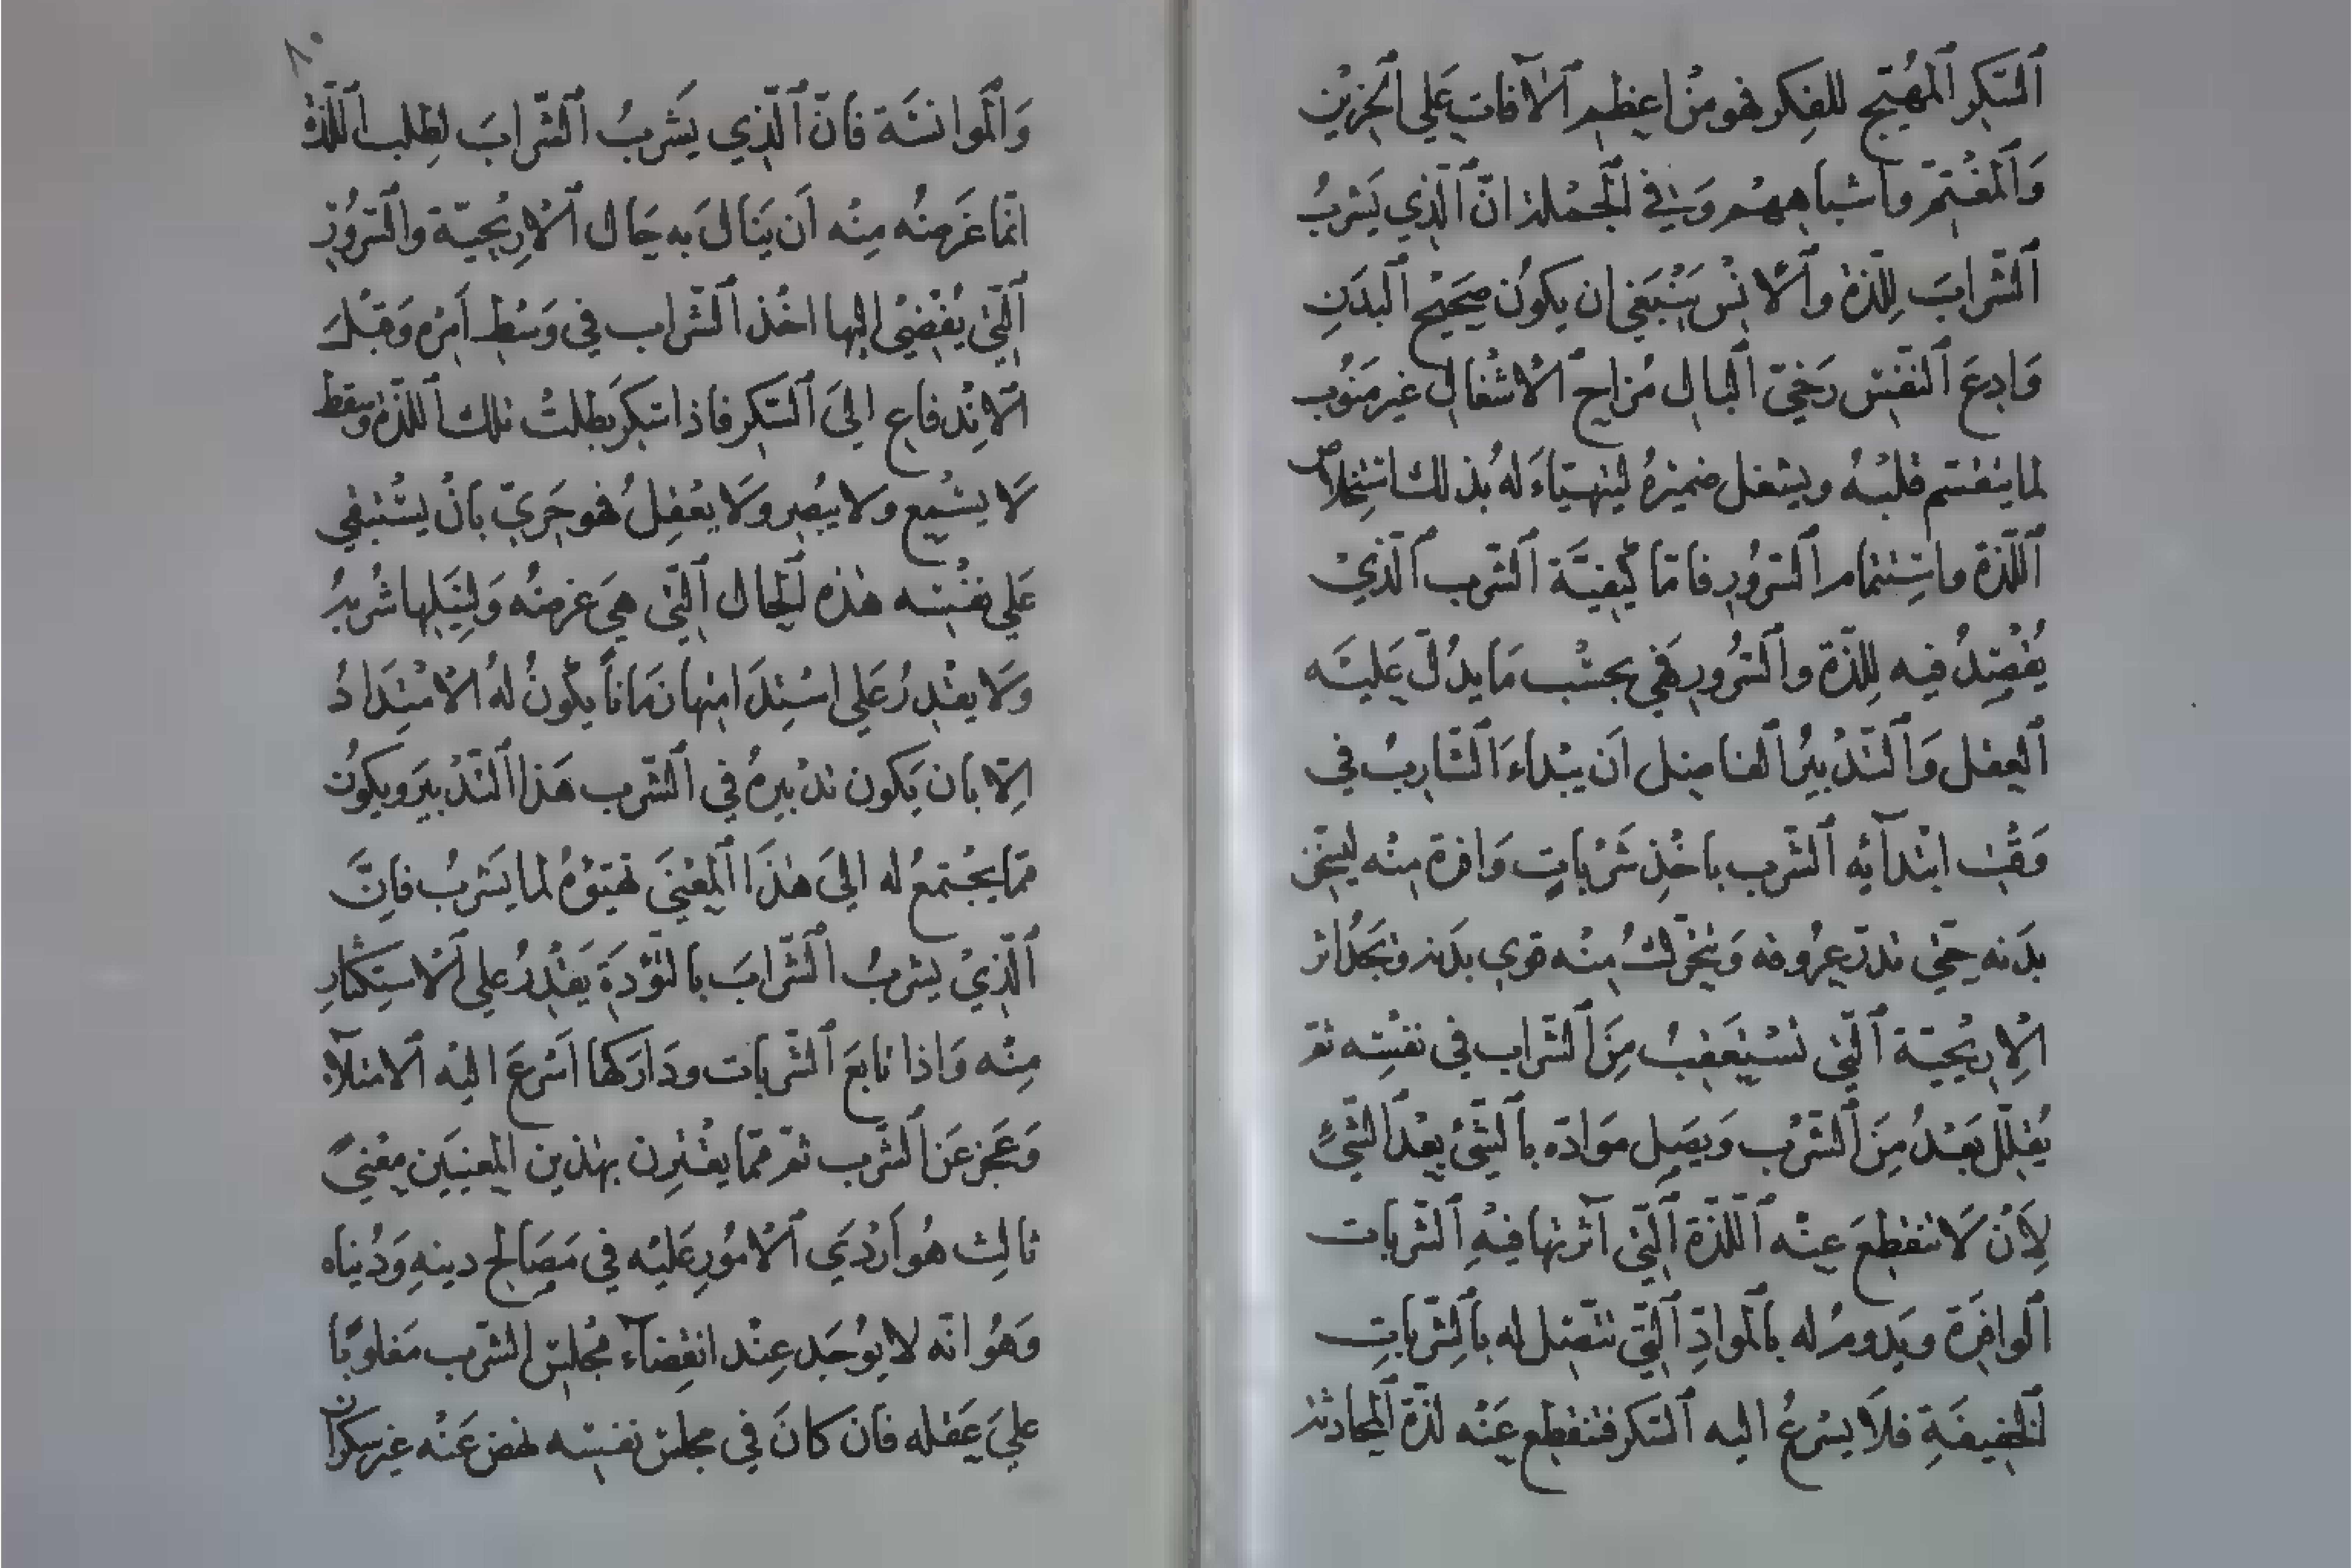 اَلسُّكر اَلمُهَيّج للفِكر فهو مِنْ اعظم اَلآفات عَلي اَلحزين
وَاَلمُغْتمّ واشباههم وَفي اَلجُملة انّ اَلّذي يَشربُ
اَلشّرابَ لِلّذة واَلأنْس يَنْبَغي ان يكونُ صحَيحْ اَلبدَنِ
وَادِعَ اَلنفْس رَخيّ اَلبال مُزاح اَلاشْغال غير مَنوُب
لما ينقسم قلبُه ويشغل ضميرهُ ليتهيّاءَ له بذلك استخلاص
اَللّذة واسْتتمام اَلسّرورِ فامّا كَيفيَّة اَلشّرب اَلّذيْ
يُقْصِدُ فيه لِلّذة واَلسّرُورِ فهي بحسْب مَا يدُلّ عَليْه
اَلعقل وَاَلتّدْبيرُ اَلفاضل اَن يبْداءَ اَلشّاربُ في
وَقْت ابْتدآئِه اَلشّرب باخْذِ شَرْباتٍ وَافرة مِنْه ليسخن
بدَنه حتّي تدرّ عرُوقه وَتتحّركُ مِنْه قوي بدَنه وتجدُ اثر
اَلاِرْيحيّة اَلّتي تَسْتعقبُ مِنَ اَلشّراب في نفْسِه ثمّ
يُقلّل بَعْدُ مِنَ اَلشّرْب وَيصَل مَوَادّه باَلشّئ بعْد اَلشّيءِ
لِاَنْ لَا تنقطعَ عنْه اَللّذة اَلّتي آثرتها فيْهِ اَلشّربات
اَلوافرَة ويَدومُ له باَلموادِّ اَلّتي تتّصل له باَلشّرباتِ
اَلخفيفَةِ فلَا يسْرعُ اليه اَلسّكر فتنقطع عَنْه لذّة اَلمحَادثة
٨٠
وَاَلموَانسَة فانّ اَلّذي يَشربُ اَلشّرابَ لطلب اَللّذة
انّما غَرضُه مِنْه اَن يَنالَ به حَال اَلارِيْحيّة واَلسّروُرِ
اَلّتي يُفْضيْ اليها اخْذ اَلشّراب في وَسْط اَمْره وَقبْلَ
اَلانْدفاع اليَ اَلسّكر فاذا سَكر بَطلتْ تلك اَللّذة وسقط
لَا يسْمع ولا يبْصر ولَا يعْقلُ فهو جَريّ بانْ يسْتبقي
عَلي نفْسه هذه اَلحال اَلّتي هيَ غرضُه
ولَا يقْدرُ عَلي اسْتدَامتها زمَاناً يكونُ لهُ اَلامْتدادُ
الّا بان يَكون تدْبيرهُ في اَلشّرب هَذا اَلتّدْبيَر ويكوُن
ممّا يجْتمعُ له اليَ هذَا اَلمعْنيَ تهنؤهُ لما يَشربُ فانَّ
اَلّذيْ يشربُ اَلشّرابَ بالتؤدَة يَقْدرُ علي اَلاسْتكثار
مِنْه وَاذا تابعَ اَلشّربات ودَاركها اَسْرعَ اليْه اَلامتلآء
وَعَجز عَن اَلشّرب ثمّ ممّا يقْترن بهذين اَلمعنيَين معْنيً
ثالث هُو اَرْدَي اَلامُورِ عَليْه في مَصَالح دينهِ وَدُنياه
وَهُو انّه لا يوُجَد عِنْد انقضآء مجْلس الشّرب مَغلوبًا
عليَ عَقله فان كانَ في مجلس نفسه نهض عَنْه غير سكران